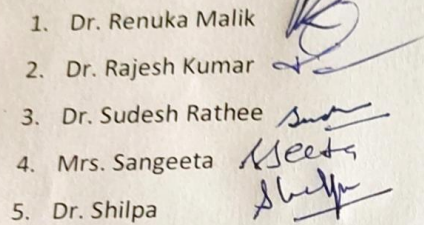 1. Dr. Renuka Malik
2. Dr. Rajesh Kumar
3. Dr. Sudesh Rathee
4. Mrs. Sangeeta
5. Dr. Shilpa